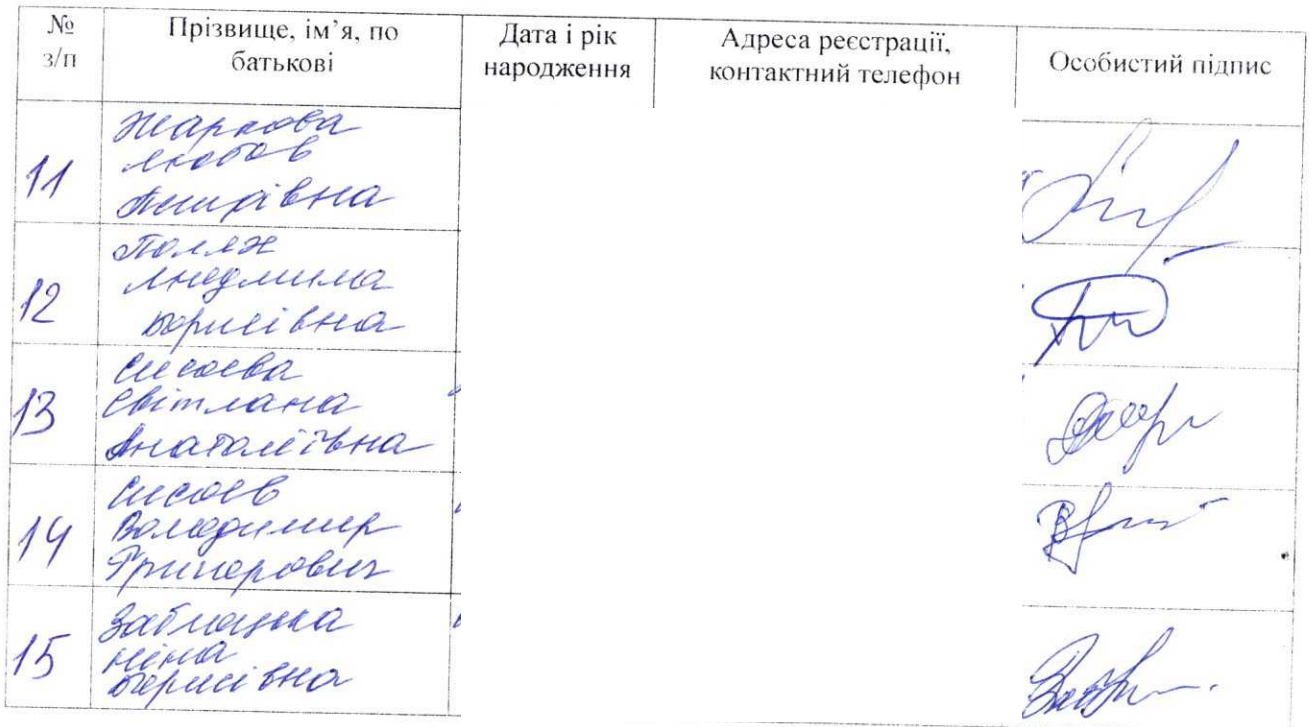 № з/п
Прізвище, ім’я, по батькові
Дата і рік народження
Адреса реєстрації, контактний телефон
Особистий підпис
11
Жаркова
Любов
12
Поляк
Людмила
Борисівна
13
Сисоєва
Світлана
Анатоліївна
14
Сисоєв
Володимир
Григорович
15
Заблоцька
Ніна
Борисівна